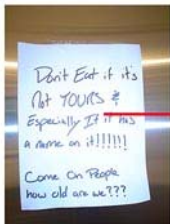 Don't Eat if it's
Not YOURS &
Especially If it has
a name on it!!!!!!
Come On People
how old are we???